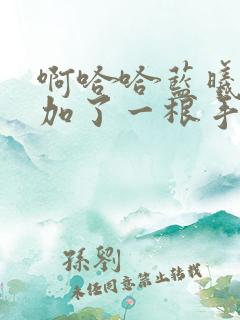 啊哈哈藍曦
加了一根手
孫劉
未經同意禁止轉載